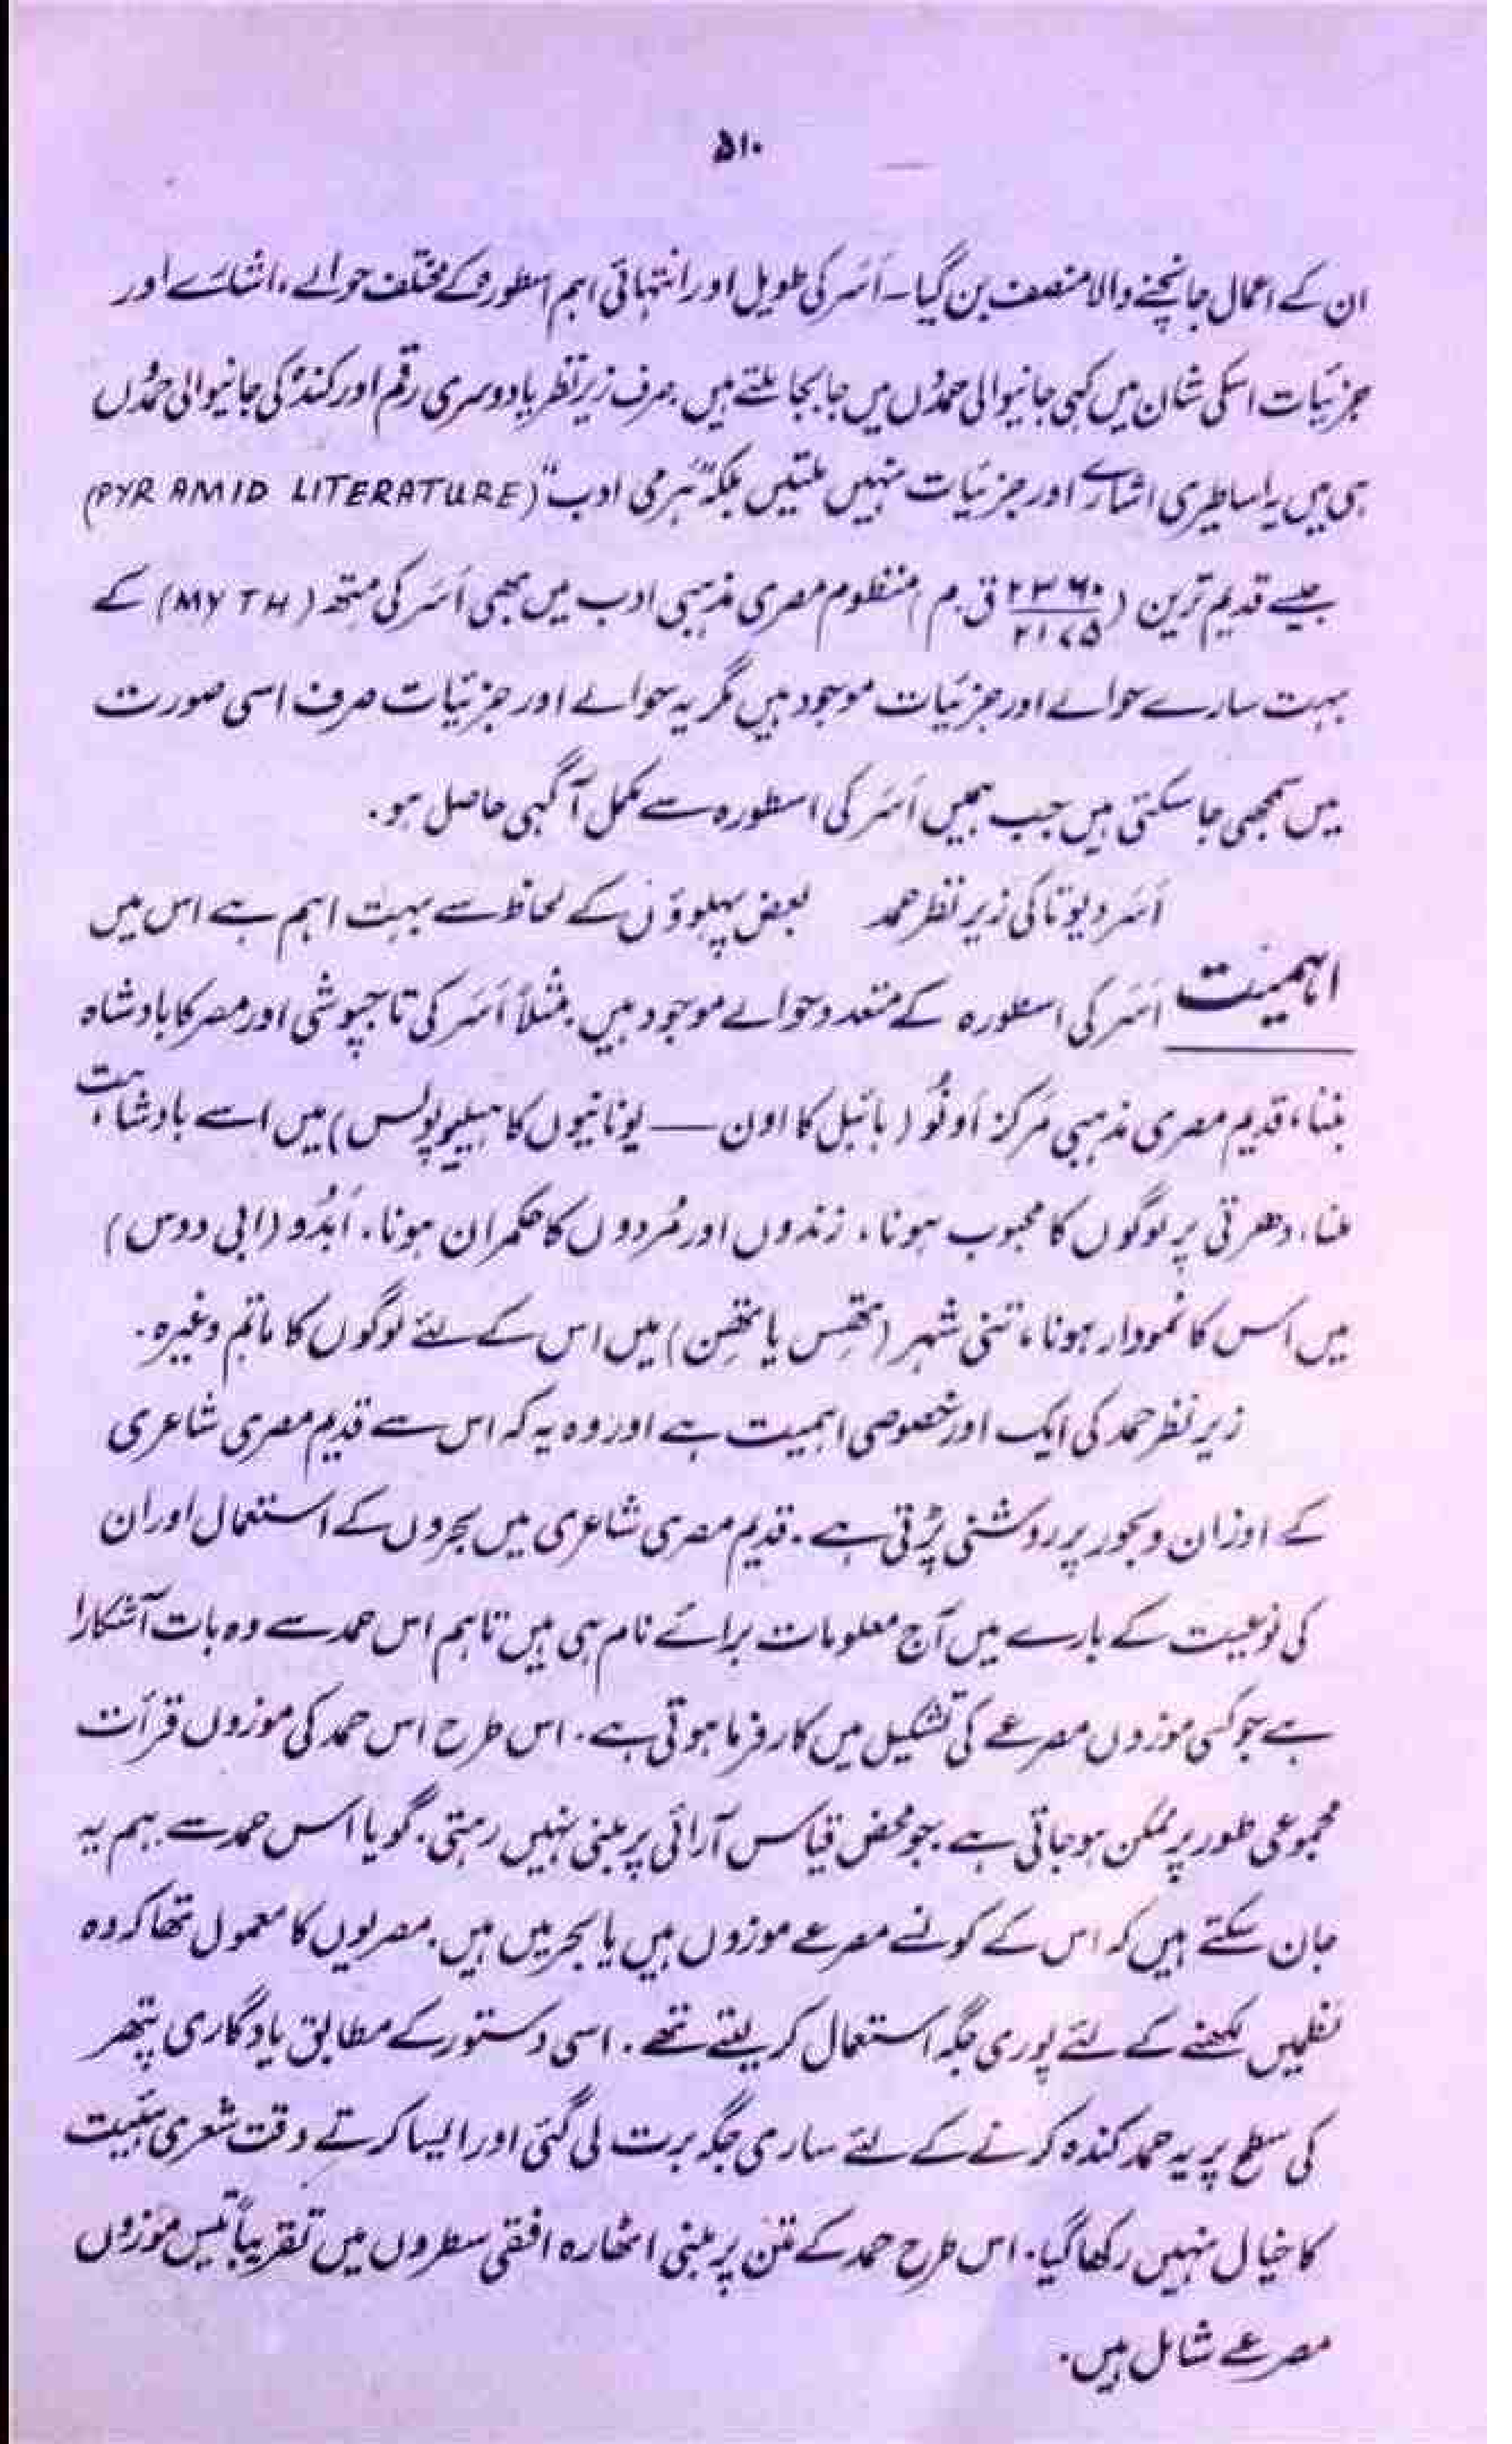 ۵۱۰
ان کے اعمال جانچنے والا منصف بن گیا۔ اَسَر کی طویل اور انتہائی اہم اسطورہ کے مختلف حوالے، اشارے اور
جزئیات اسکی شان میں کہی جانیوالی حمدوں میں جابجا ملتے ہیں۔ صرف زیرِ نظر یا دوسری رقم اور کندہ کی جانیوالی حمدوں
ہی میں یہ اساطیری اشارے اور جزئیات نہیں ملتیں بلکہ "ہَرمی ادب" (PYRAMID LITERATURE)
جیسے قدیم ترین (۲۳۶۰/۲۱۷۵ ق۔م) منظوم مصری مذہبی ادب میں بھی اَسَر کی متھ (MYTH) کے
بہت سارے حوالے اور جزئیات موجود ہیں مگر یہ حوالے اور جزئیات صرف اسی صورت
میں سمجھی جا سکتی ہیں جب ہمیں اَسَر کی اسطورہ سے مکمل آگہی حاصل ہو۔
اَسَر دیوتا کی زیرِ نظر حمد بعض پہلوؤں کے لحاظ سے بہت اہم ہے اس میں
اہمیت اَسَر کی اسطورہ کے متعدد حوالے موجود ہیں۔ مثلاً اَسَر کی تاجپوشی اور مصر کا بادشاہ
بننا، قدیم مصری مذہبی مرکز اَونُو (بائبل کا اون — یونانیوں کا ہیلیوپولس) میں اسے بادشاہت
ملنا، دھرتی پر لوگوں کا محبوب ہونا، زندوں اور مُردوں کا حکمران ہونا۔ اَبدُو (ابی دوس)
میں اس کا نمودار ہونا، تنی شہر (تھِس یا تھِن) میں اس کے لئے لوگوں کا ماتم وغیرہ۔
زیرِ نظر حمد کی ایک اور خصوصی اہمیت ہے اور وہ یہ کہ اس سے قدیم مصری شاعری
کے اوزان و بحور پر روشنی پڑتی ہے۔ قدیم مصری شاعری میں بحروں کے استعمال اور ان
کی نوعیت کے بارے میں آج معلومات برائے نام ہی ہیں تاہم اس حمد سے وہ بات آشکارا
ہے جو کسی موزوں مصرعے کی تشکیل میں کارفرما ہوتی ہے۔ اس طرح اس حمد کی موزوں قرأت
مجموعی طور پر ممکن ہو جاتی ہے۔ جو محض قیاس آرائی پر مبنی نہیں رہتی۔ گویا اس حمد سے ہم یہ
جان سکتے ہیں کہ اس کے کونسے مصرعے موزوں ہیں یا بحر میں ہیں۔ مصریوں کا معمول تھا کہ وہ
نظمیں لکھنے کے لئے پوری جگہ استعمال کر لیتے تھے۔ اسی دستور کے مطابق یادگاری پتھر
کی سطح پر یہ حمد کندہ کرنے کے لئے ساری جگہ برت لی گئی اور ایسا کرتے وقت شعری ہیئت
کا خیال نہیں رکھا گیا۔ اس طرح حمد کے متن پر مبنی اٹھارہ افقی سطروں میں تقریباً تیس موزوں
مصرعے شامل ہیں۔